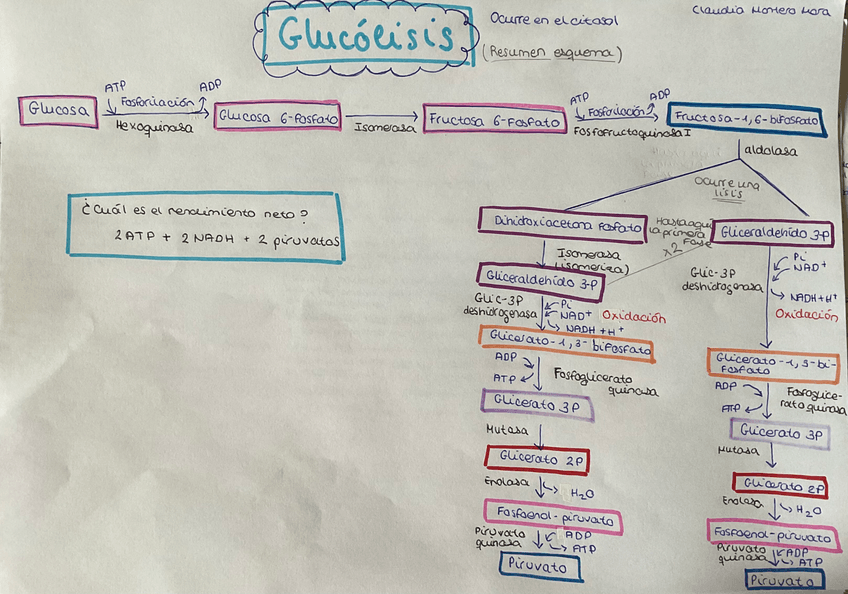 Glucólisis
Ocurre en el citosol
(Resumen esquema)
Claudia Montero Mora
Glucosa
ATP
ADP
Fosforilación
Hexoquinasa
Glucosa 6-fosfato
Isomerasa
Fructosa 6-fosfato
ATP
ADP
Fosforilación
Fosfofructoquinasa I
Fructosa-1,6-bifosfato
aldolasa
Ocurre una
lisis
¿Cuál es el rendimiento neto?
2 ATP + 2 NADH + 2 piruvatos
Dihidroxiacetona fosfato
Hasta aquí
la primera
Fase
x2
Gliceraldehído 3-P
Isomerasa
(isomeriza)
Gliceraldehído 3-P
Glic-3P
deshidrogenasa
Pi
NAD+
NADH + H+
Oxidación
Glicerato-1,3-bifosfato
ADP
ATP
Fosfoglicerato
quinasa
Glicerato 3P
Mutasa
Glicerato 2P
Enolasa
H2O
Fosfoenol-piruvato
Piruvato
quinasa
ADP
ATP
Piruvato
Glic-3P
deshidrogenasa
Pi
NAD+
NADH + H+
Oxidación
Glicerato-1,3-bi-
fosfato
ADP
ATP
Fosfoglice-
rato quinasa
Glicerato 3P
Mutasa
Glicerato 2P
Enolasa
H2O
Fosfoenol-piruvato
Piruvato
quinasa
ADP
ATP
Piruvato